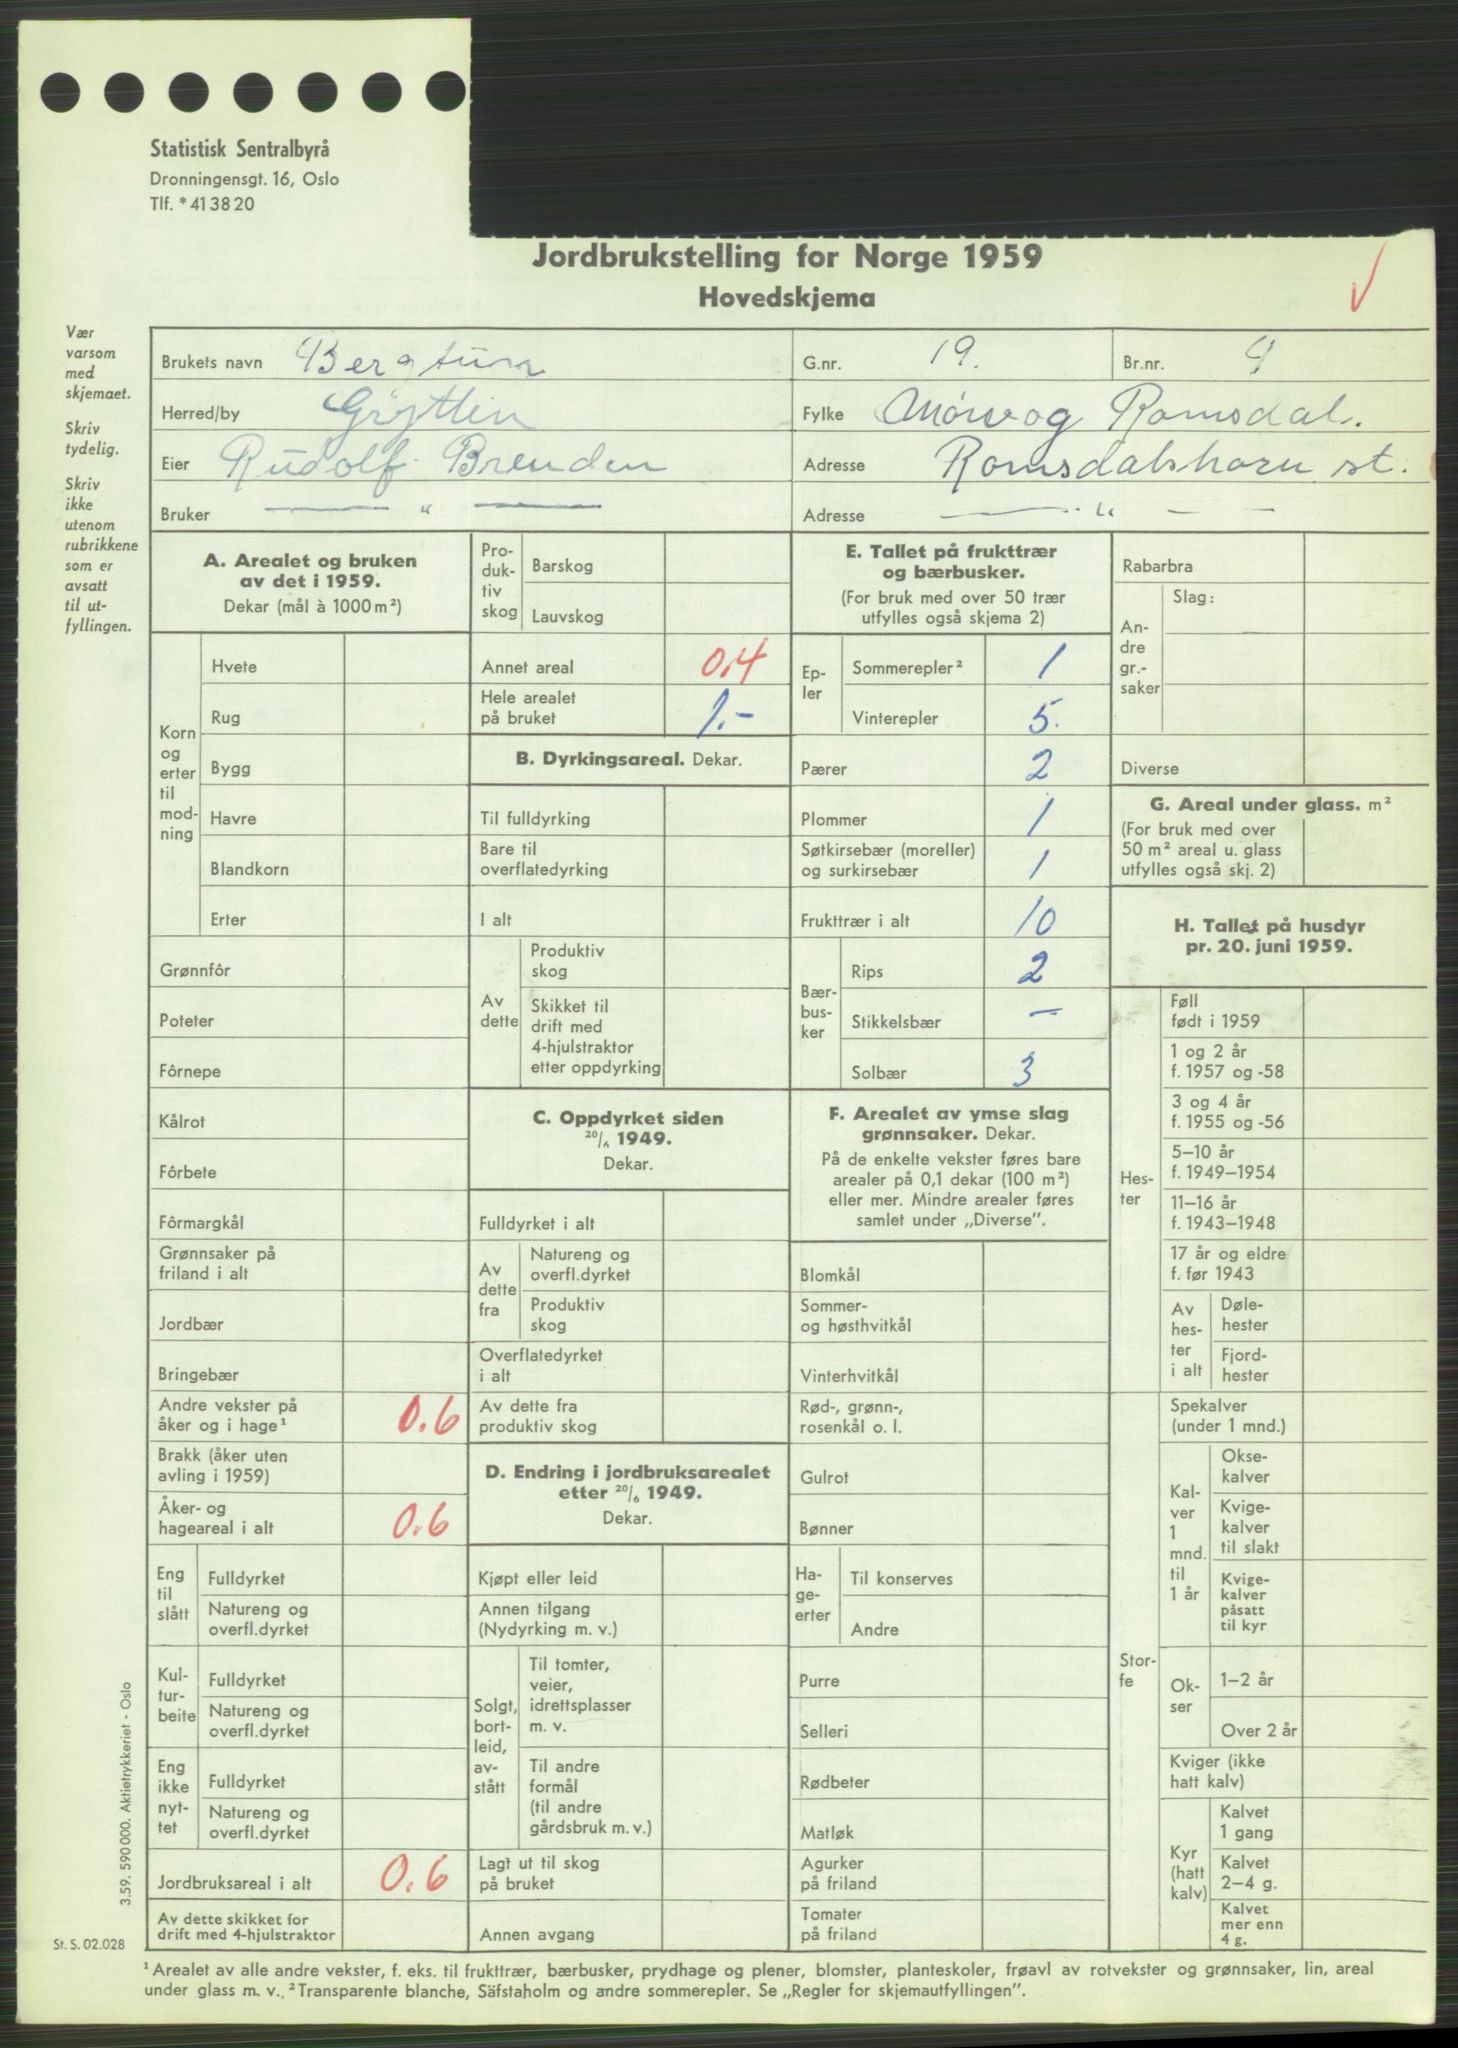 Statistisk Sentralbyrå
Dronningensgt. 16, Oslo
Tlf. * 41 38 20
Jordbrukstelling for Norge 1959
Hovedskjema
Vær
varsom
med
skjemaet.
Skriv
tydelig.
Skriv
ikke
utenom
rubrikkene
som er
avsatt
til ut-
fyllingen.
Brukets navn Bergtun G.nr. 19. Br.nr. 4
Herred/by Grytten Fylke Møre og Romsdal.
Eier Rudolf Brenden Adresse Romsdalshorn st.
Bruker — " — Adresse — " —
A. Arealet og bruken
av det i 1959.
Dekar (mål à 1000 m²)
Korn
og
erter
til
mod-
ning
Hvete
Rug
Bygg
Havre
Blandkorn
Erter
Grønnfôr
Poteter
Fôrnepe
Kålrot
Fôrbete
Fôrmargkål
Grønnsaker på
friland i alt
Jordbær
Bringebær
Andre vekster på
åker og i hage¹ 0.6
Brakk (åker uten
avling i 1959)
Åker- og
hageareal i alt 0.6
Eng
til
slått
Fulldyrket
Natureng og
overfl.dyrket
Kul-
tur-
beite
Fulldyrket
Natureng og
overfl.dyrket
Eng
ikke
nyt-
tet
Fulldyrket
Natureng og
overfl.dyrket
Jordbruksareal i alt 0.6
Av dette skikket for
drift med 4-hjulstraktor
Pro-
duk-
tiv
skog
Barskog
Lauvskog
Annet areal 0.4
Hele arealet
på bruket 1.-
B. Dyrkingsareal. Dekar.
Til fulldyrking
Bare til
overflatedyrking
I alt
Av
dette
Produktiv
skog
Skikket til
drift med
4-hjulstraktor
etter oppdyrking
C. Oppdyrket siden
20/6 1949.
Dekar.
Fulldyrket i alt
Av
dette
fra
Natureng og
overfl.dyrket
Produktiv
skog
Overflatedyrket
i alt
Av dette fra
produktiv skog
D. Endring i jordbruksarealet
etter 20/6 1949.
Dekar.
Kjøpt eller leid
Annen tilgang
(Nydyrking m. v.)
Solgt,
bort-
leid,
av-
stått
Til tomter,
veier,
idrettsplasser
m. v.
Til andre
formål
(til andre
gårdsbruk m. v.)
Lagt ut til skog
på bruket
Annen avgang
E. Tallet på frukttrær
og bærbusker.
(For bruk med over 50 trær
utfylles også skjema 2)
Ep-
ler
Sommerepler² 1
Vinterepler 5.
Pærer 2
Plommer 1
Søtkirsebær (moreller)
og surkirsebær 1
Frukttrær i alt 10
Bær-
bus-
ker
Rips 2
Stikkelsbær —
Solbær 3
F. Arealet av ymse slag
grønnsaker. Dekar.
På de enkelte vekster føres bare
arealer på 0,1 dekar (100 m²)
eller mer. Mindre arealer føres
samlet under „Diverse”.
Blomkål
Sommer-
og høsthvitkål
Vinterhvitkål
Rød-, grønn-,
rosenkål o. l.
Gulrot
Bønner
Ha-
ge-
erter
Til konserves
Andre
Purre
Selleri
Rødbeter
Matløk
Agurker
på friland
Tomater
på friland
Rabarbra
An-
dre
gr.-
saker
Slag:
Diverse
G. Areal under glass. m²
(For bruk med over
50 m² areal u. glass
utfylles også skj. 2)
H. Tallet på husdyr
pr. 20. juni 1959.
Hes-
ter
Føll
født i 1959
1 og 2 år
f. 1957 og -58
3 og 4 år
f. 1955 og -56
5–10 år
f. 1949–1954
11–16 år
f. 1943–1948
17 år og eldre
f. før 1943
Av
hes-
ter
i alt
Døle-
hester
Fjord-
hester
Stor-
fe
Spekalver
(under 1 mnd.)
Kal-
ver
1
mnd.
til
1 år
Okse-
kalver
Kvige-
kalver
til slakt
Kvige-
kalver
påsatt
til kyr
Ok-
ser
1–2 år
Over 2 år
Kviger (ikke
hatt kalv)
Kyr
(hatt
kalv)
Kalvet
1 gang
Kalvet
2–4 g.
Kalvet
mer enn
4 g.
3.59. 590 000. Aktietrykkeriet - Oslo
St. S. 02.028
¹ Arealet av alle andre vekster, f. eks. til frukttrær, bærbusker, prydhage og plener, blomster, planteskoler, frøavl av rotvekster og grønnsaker, lin, areal
under glass m. v. ² Transparente blanche, Säfstaholm og andre sommerepler. Se „Regler for skjemautfyllingen”.